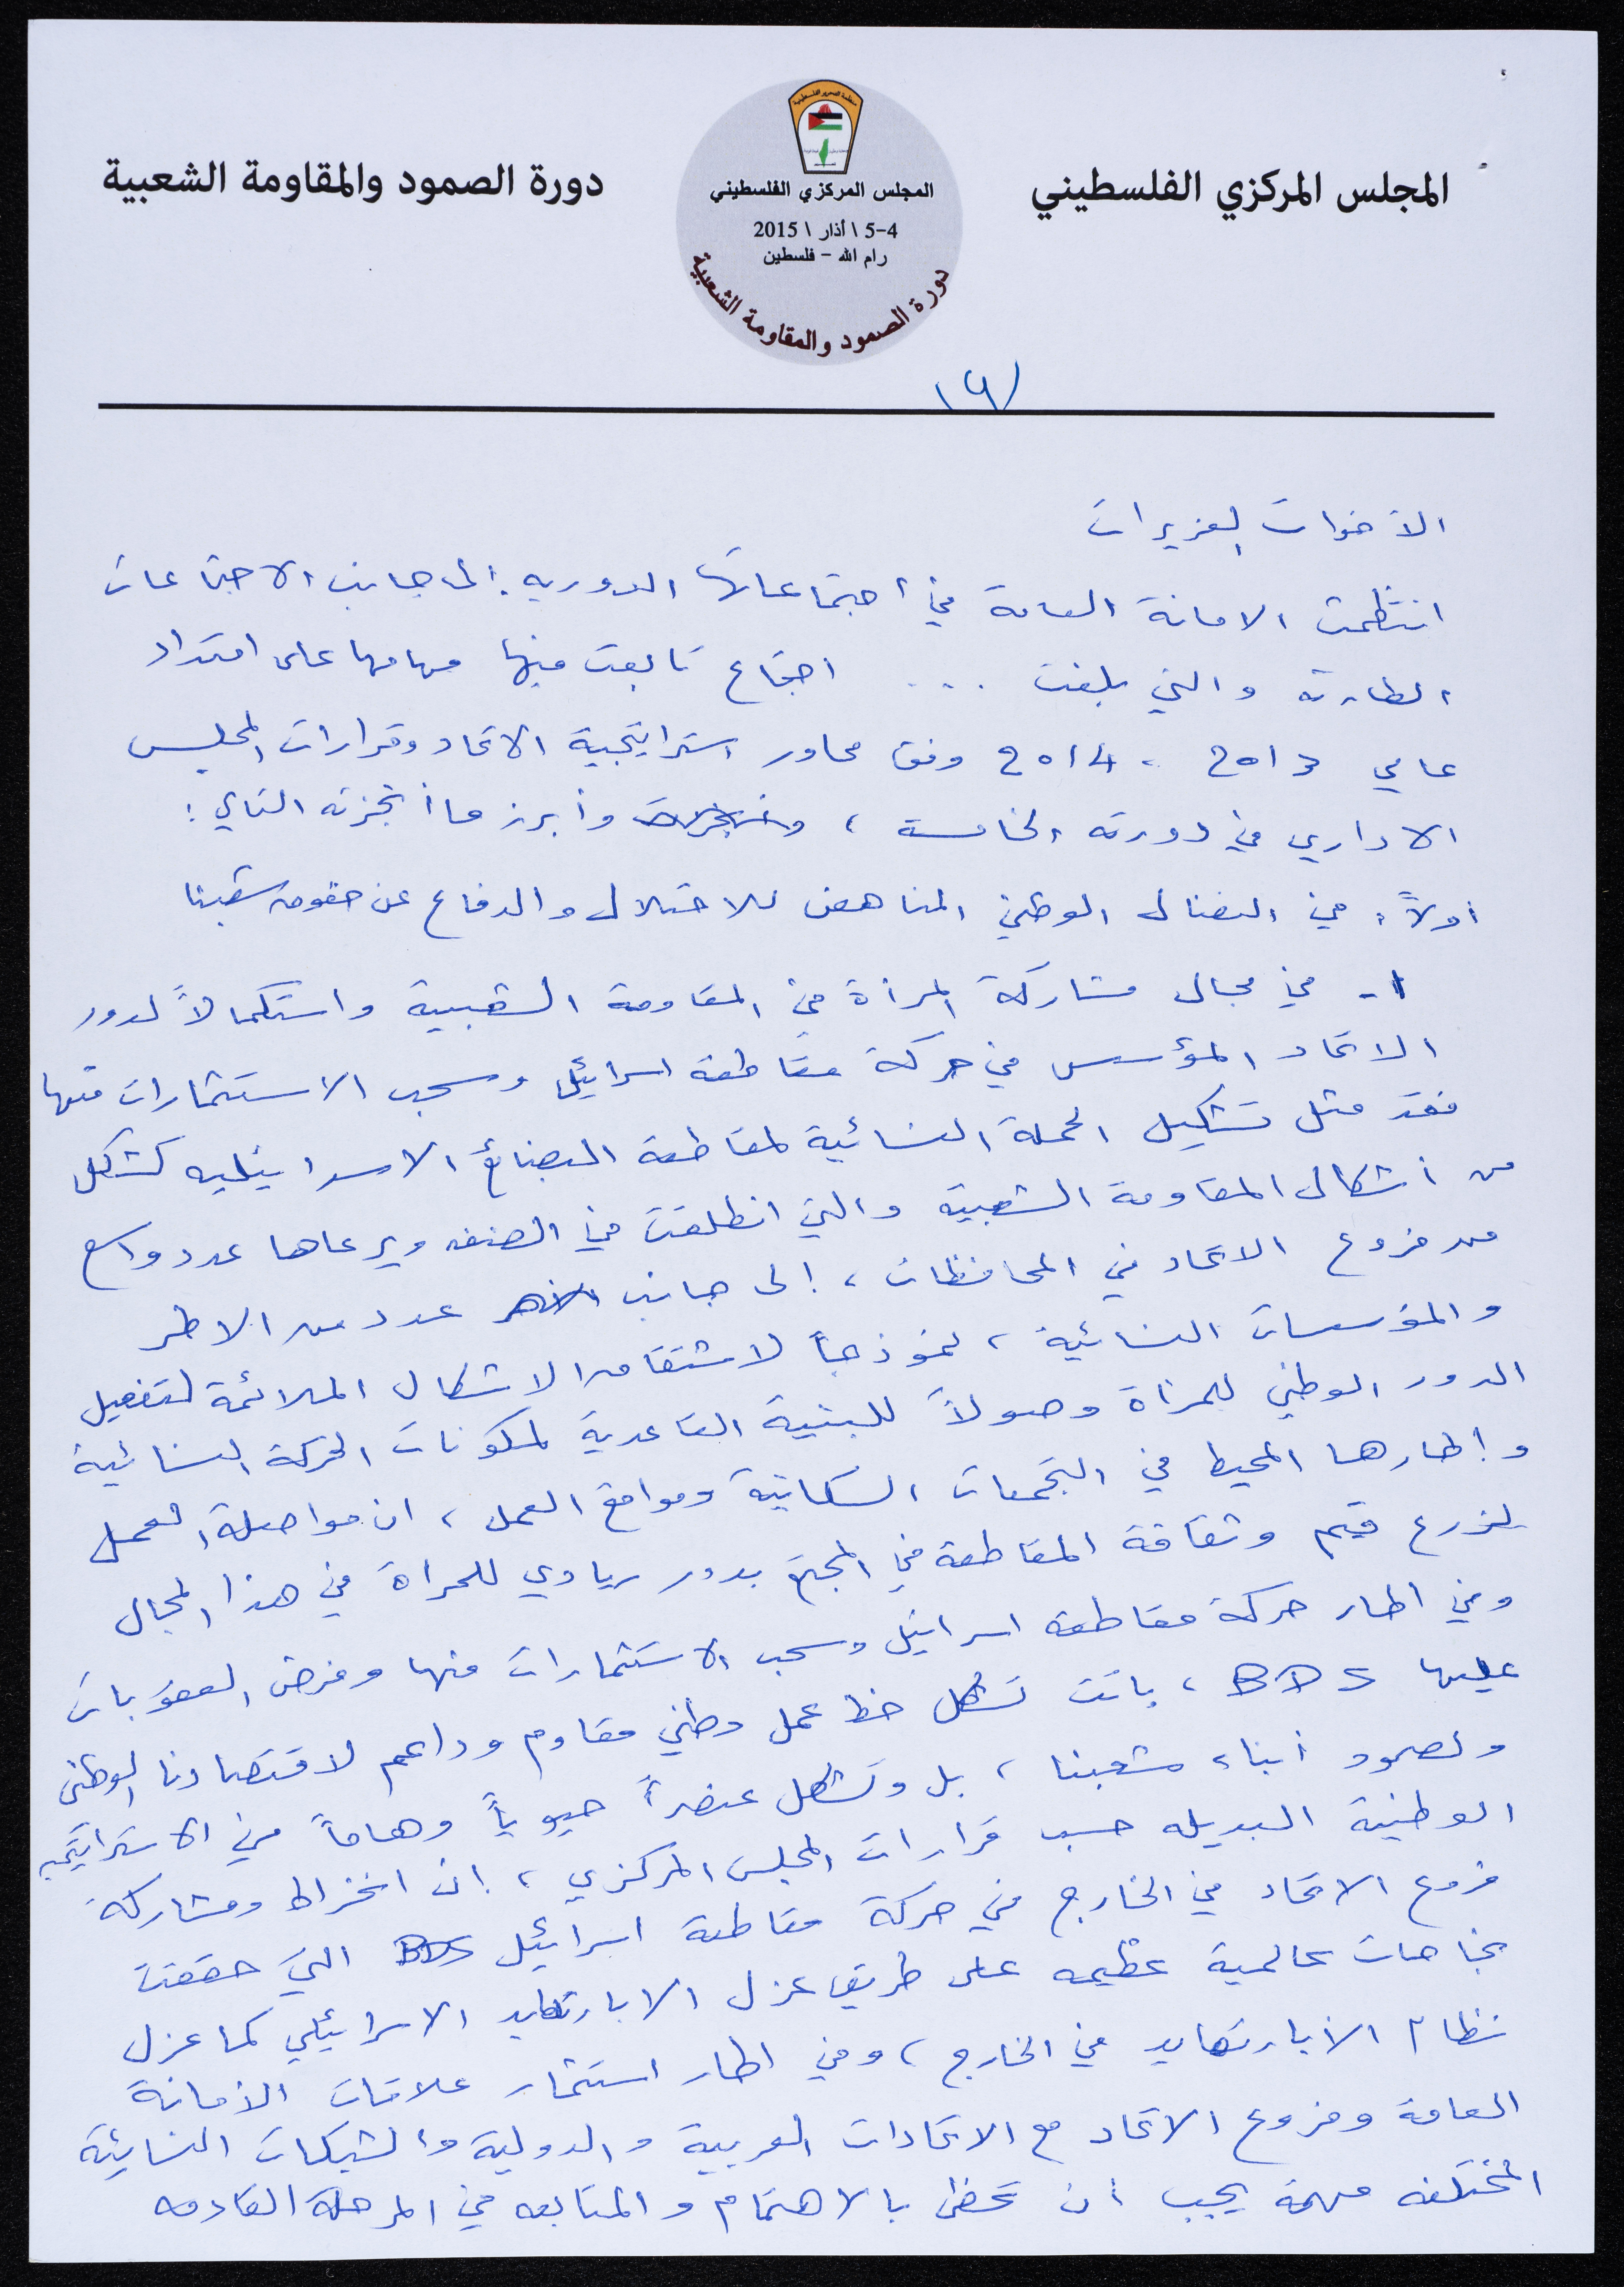 المجلس المركزي الفلسطيني
دورة الصمود والمقاومة الشعبية
منظمة التحرير الفلسطينية
المجلس المركزي الفلسطيني
5-4 \ أذار \ 2015
رام الله - فلسطين
دورة الصمود والمقاومة الشعبية
الأخوات العزيزات
انتظمت الامانة العامة في اجتماعاتها الدورية إلى جانب الاجتماعات
الطارئة والتي بلغت .... اجتماع تابعت فيها مهامها على امتداد
عامي 2013 ، 2014 وفق محاور استراتيجية الاتحاد وقرارات المجلس
الاداري في دورته الخامسة ، وأبرز ما أنجزته التالي :
أولاً: في النضال الوطني المناهض للاحتلال والدفاع عن حقوق شعبنا
١- في مجال مشاركة المرأة في المقاومة الشعبية واستكمالاً لدور
الاتحاد المؤسس في حركة مقاطعة اسرائيل وسحب الاستثمارات منها
فقد مثل تشكيل الحملة النسائية لمقاطعة البضائع الاسرائيليه كشكل
من أشكال المقاومة الشعبية والتي انطلقت في الضفه ويرعاها عدد واسع
من فروع الاتحاد في المحافظات ، إلى جانب عدد من الاطر
والمؤسسات النسائية ، نموذجاً لاشتقاق الاشكال الملائمة لتفعيل
الدور الوطني للمرأة وصولاً للبنية القاعدية لمكونات الحركة النسائية
وإطارها المحيط في التجمعات السكانية ومواقع العمل ، ان مواصلة العمل
لزرع قيم وثقافة المقاطعة في المجتمع بدور ريادي للمرأة في هذا المجال
وفي اطار حركة مقاطعة اسرائيل وسحب الاستثمارات منها وفرض العقوبات
عليها BDS ، باتت تشكل خط عمل وطني مقاوم وداعم لاقتصادنا الوطني
ولصمود أبناء شعبنا ، بل وتشكل عنصراً حيوياً وهاماً في الاستراتيجية
الوطنية البديله حسب قرارات المجلس المركزي ، ان انخراط ومشاركة
فروع الاتحاد في الخارج في حركة مقاطعة اسرائيل BDS التي حققت
نجاحات عالمية عظيمه على طريق عزل الابارتهايد الاسرائيلي كما عزل
نظام الأبارتهايد في الخارج ، وفي اطار استثمار علاقات الأمانة
العامة وفروع الاتحاد مع الاتحادات العربية والدولية والشبكات النسائية
المختلفه مهمة يجب أن تحظى بالاهتمام والمتابعه في المرحلة القادمه